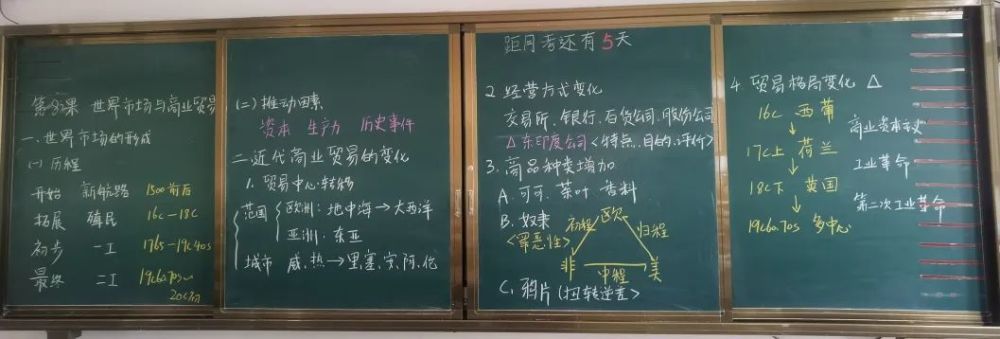 第8课 世界市场与商业贸易
一.世界市场的形成
(一) 历程
开始 新航路 1500前后
拓展 殖民 16c-18c
初步 一工 1765-19c40s
最终 二工 19c60.70s~
20c初
(二) 推动因素
资本 生产力 历史事件
二.近代商业贸易的变化
1. 贸易中心转移
范围 欧洲：地中海→大西洋
亚洲.东亚
城市 威.热→里.塞.安.阿.伦
距月考还有5天
2 经营方式变化
交易所.银行.百货公司.股份公司
△东印度公司<特点.目的.评价>
3. 商品种类增加
A.可可.茶叶 香料
B.奴隶
<罪恶性>
初程 欧 归程
非 中程 美
C. 鸦片(扭转逆差>
4. 贸易格局变化 △
16c 西葡
↓ 商业资本主义
17c上 荷兰
↓ 工业革命
18c下 英国
↓ 第二次工业革命
19c60.70s 多中心